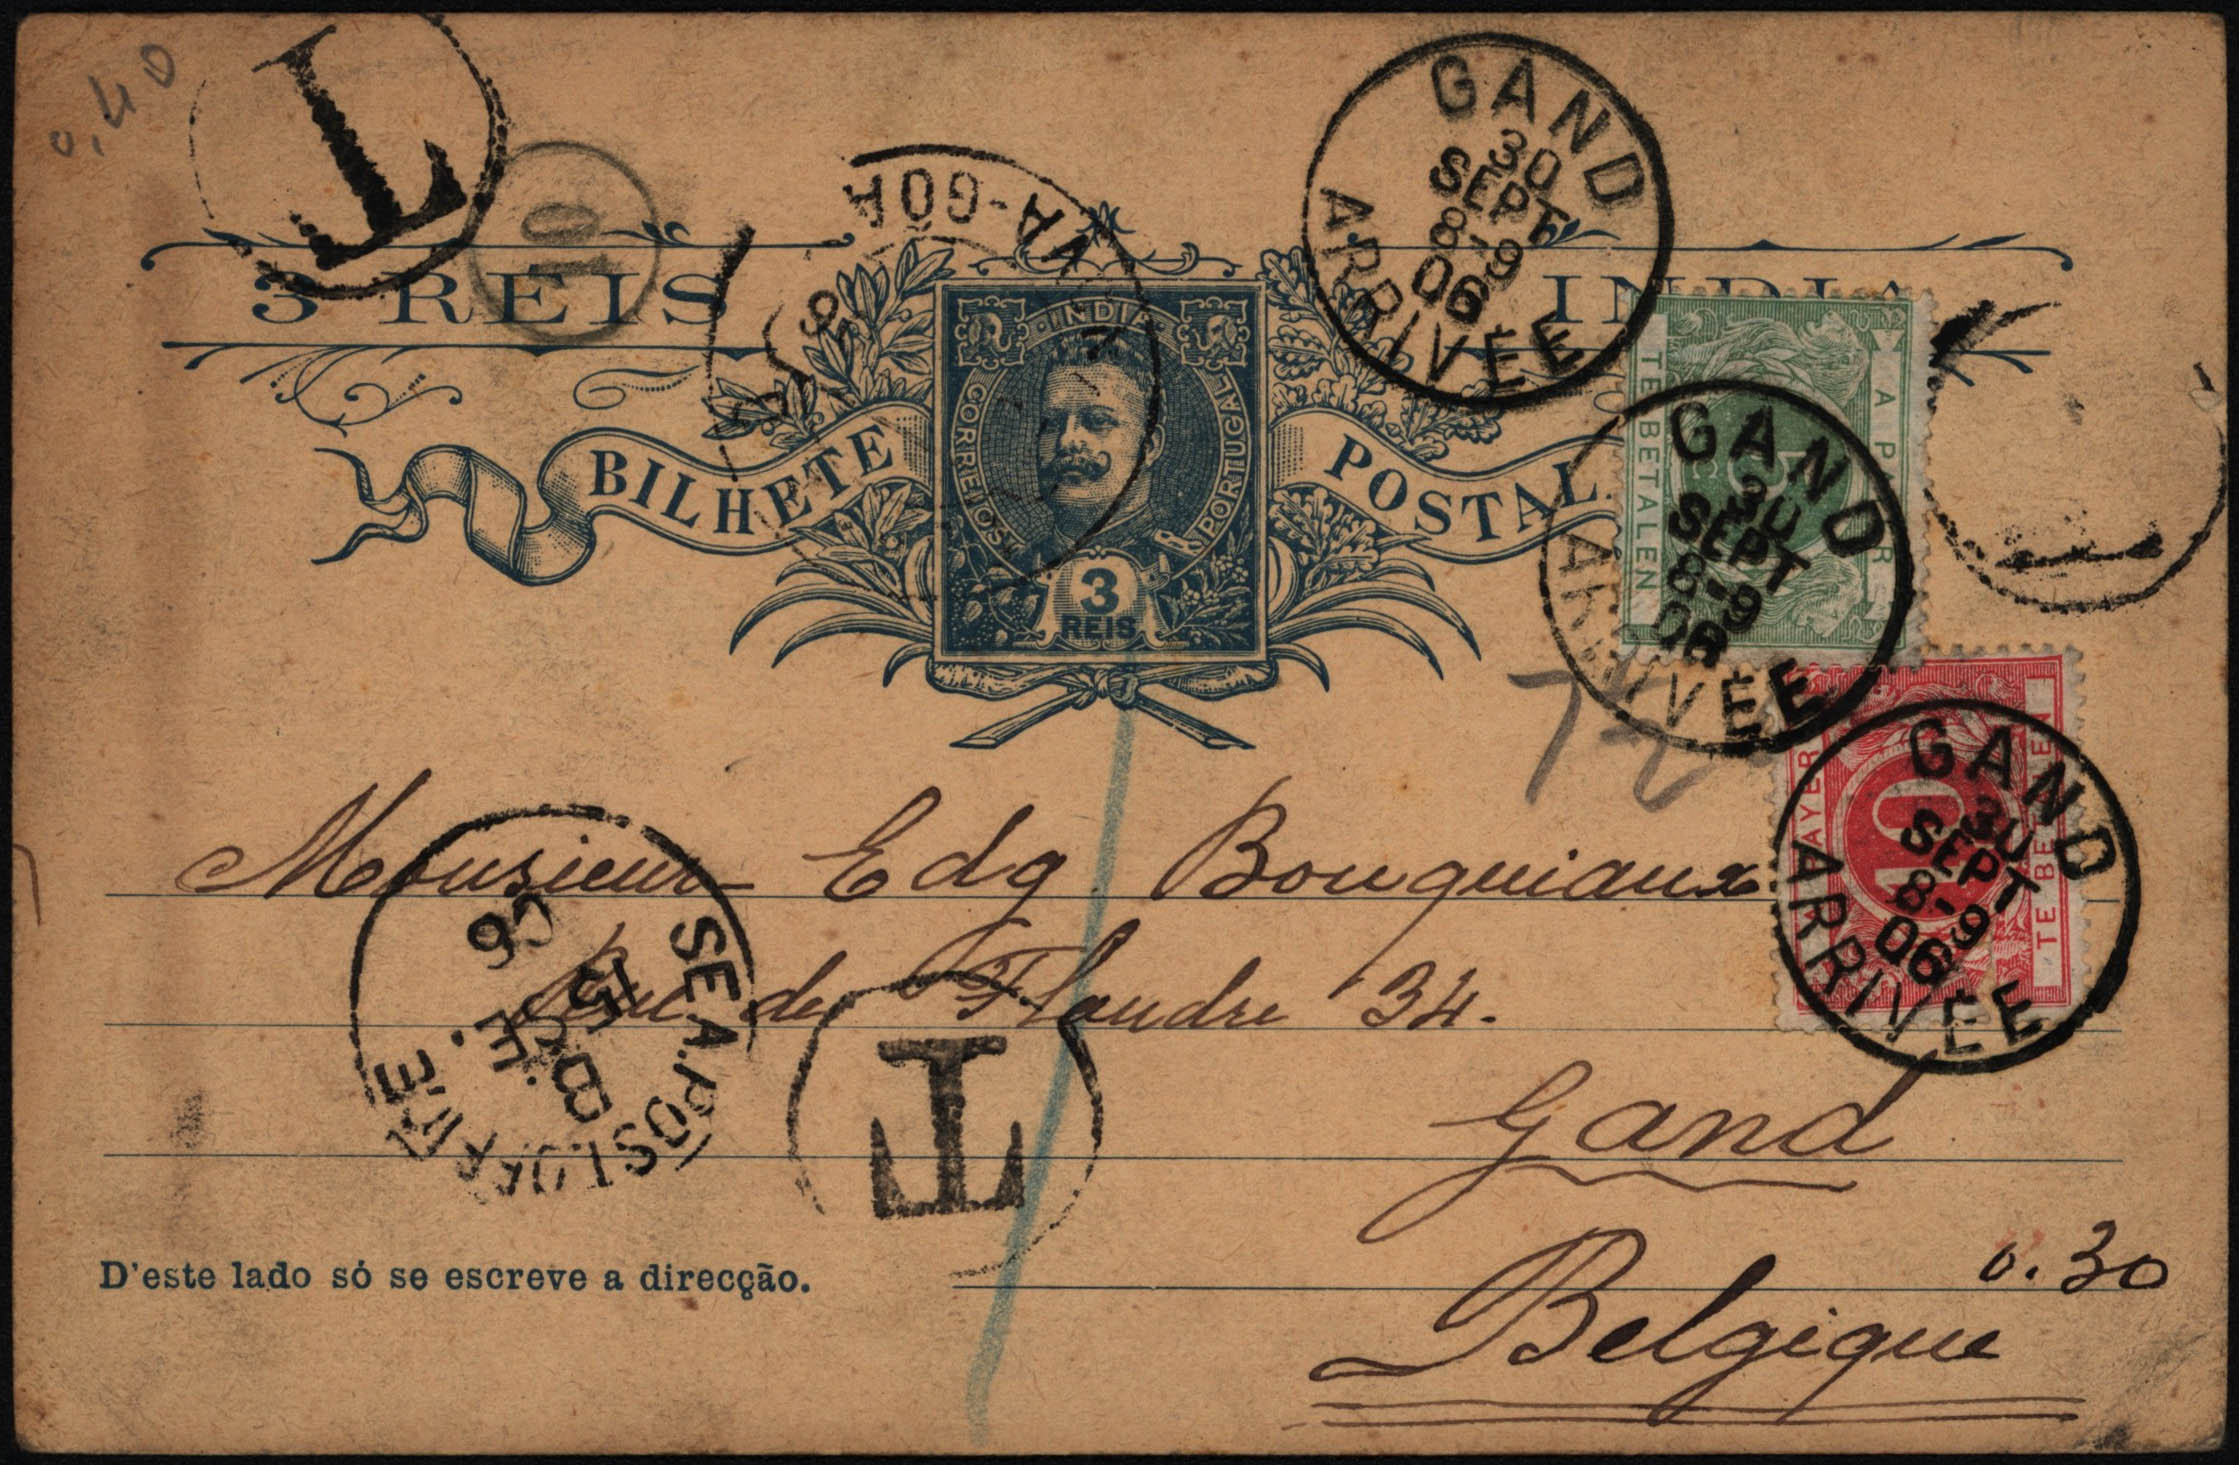 0,40
T
10
NOVA-GÔA
GAND
30
SEPT
8-9
06
ARRIVÉE
3 REIS
INDIA
INDIA
CORREIOS
PORTUGAL
3
REIS
BILHETE
POSTAL
A PAYER
TE BETALEN
5
GAND
30
SEPT
8-9
06
ARRIVÉE
T
72
A PAYER
TE BETALEN
10
GAND
30
SEPT
8-9
06
ARRIVÉE
Monsieur Edg Bouquiaux
Rue de Flandre 34.
Gand
Belgique
0.30
SEA.POST.OFFICE
B
15 SE.
06
T
D'este lado só se escreve a direcção.